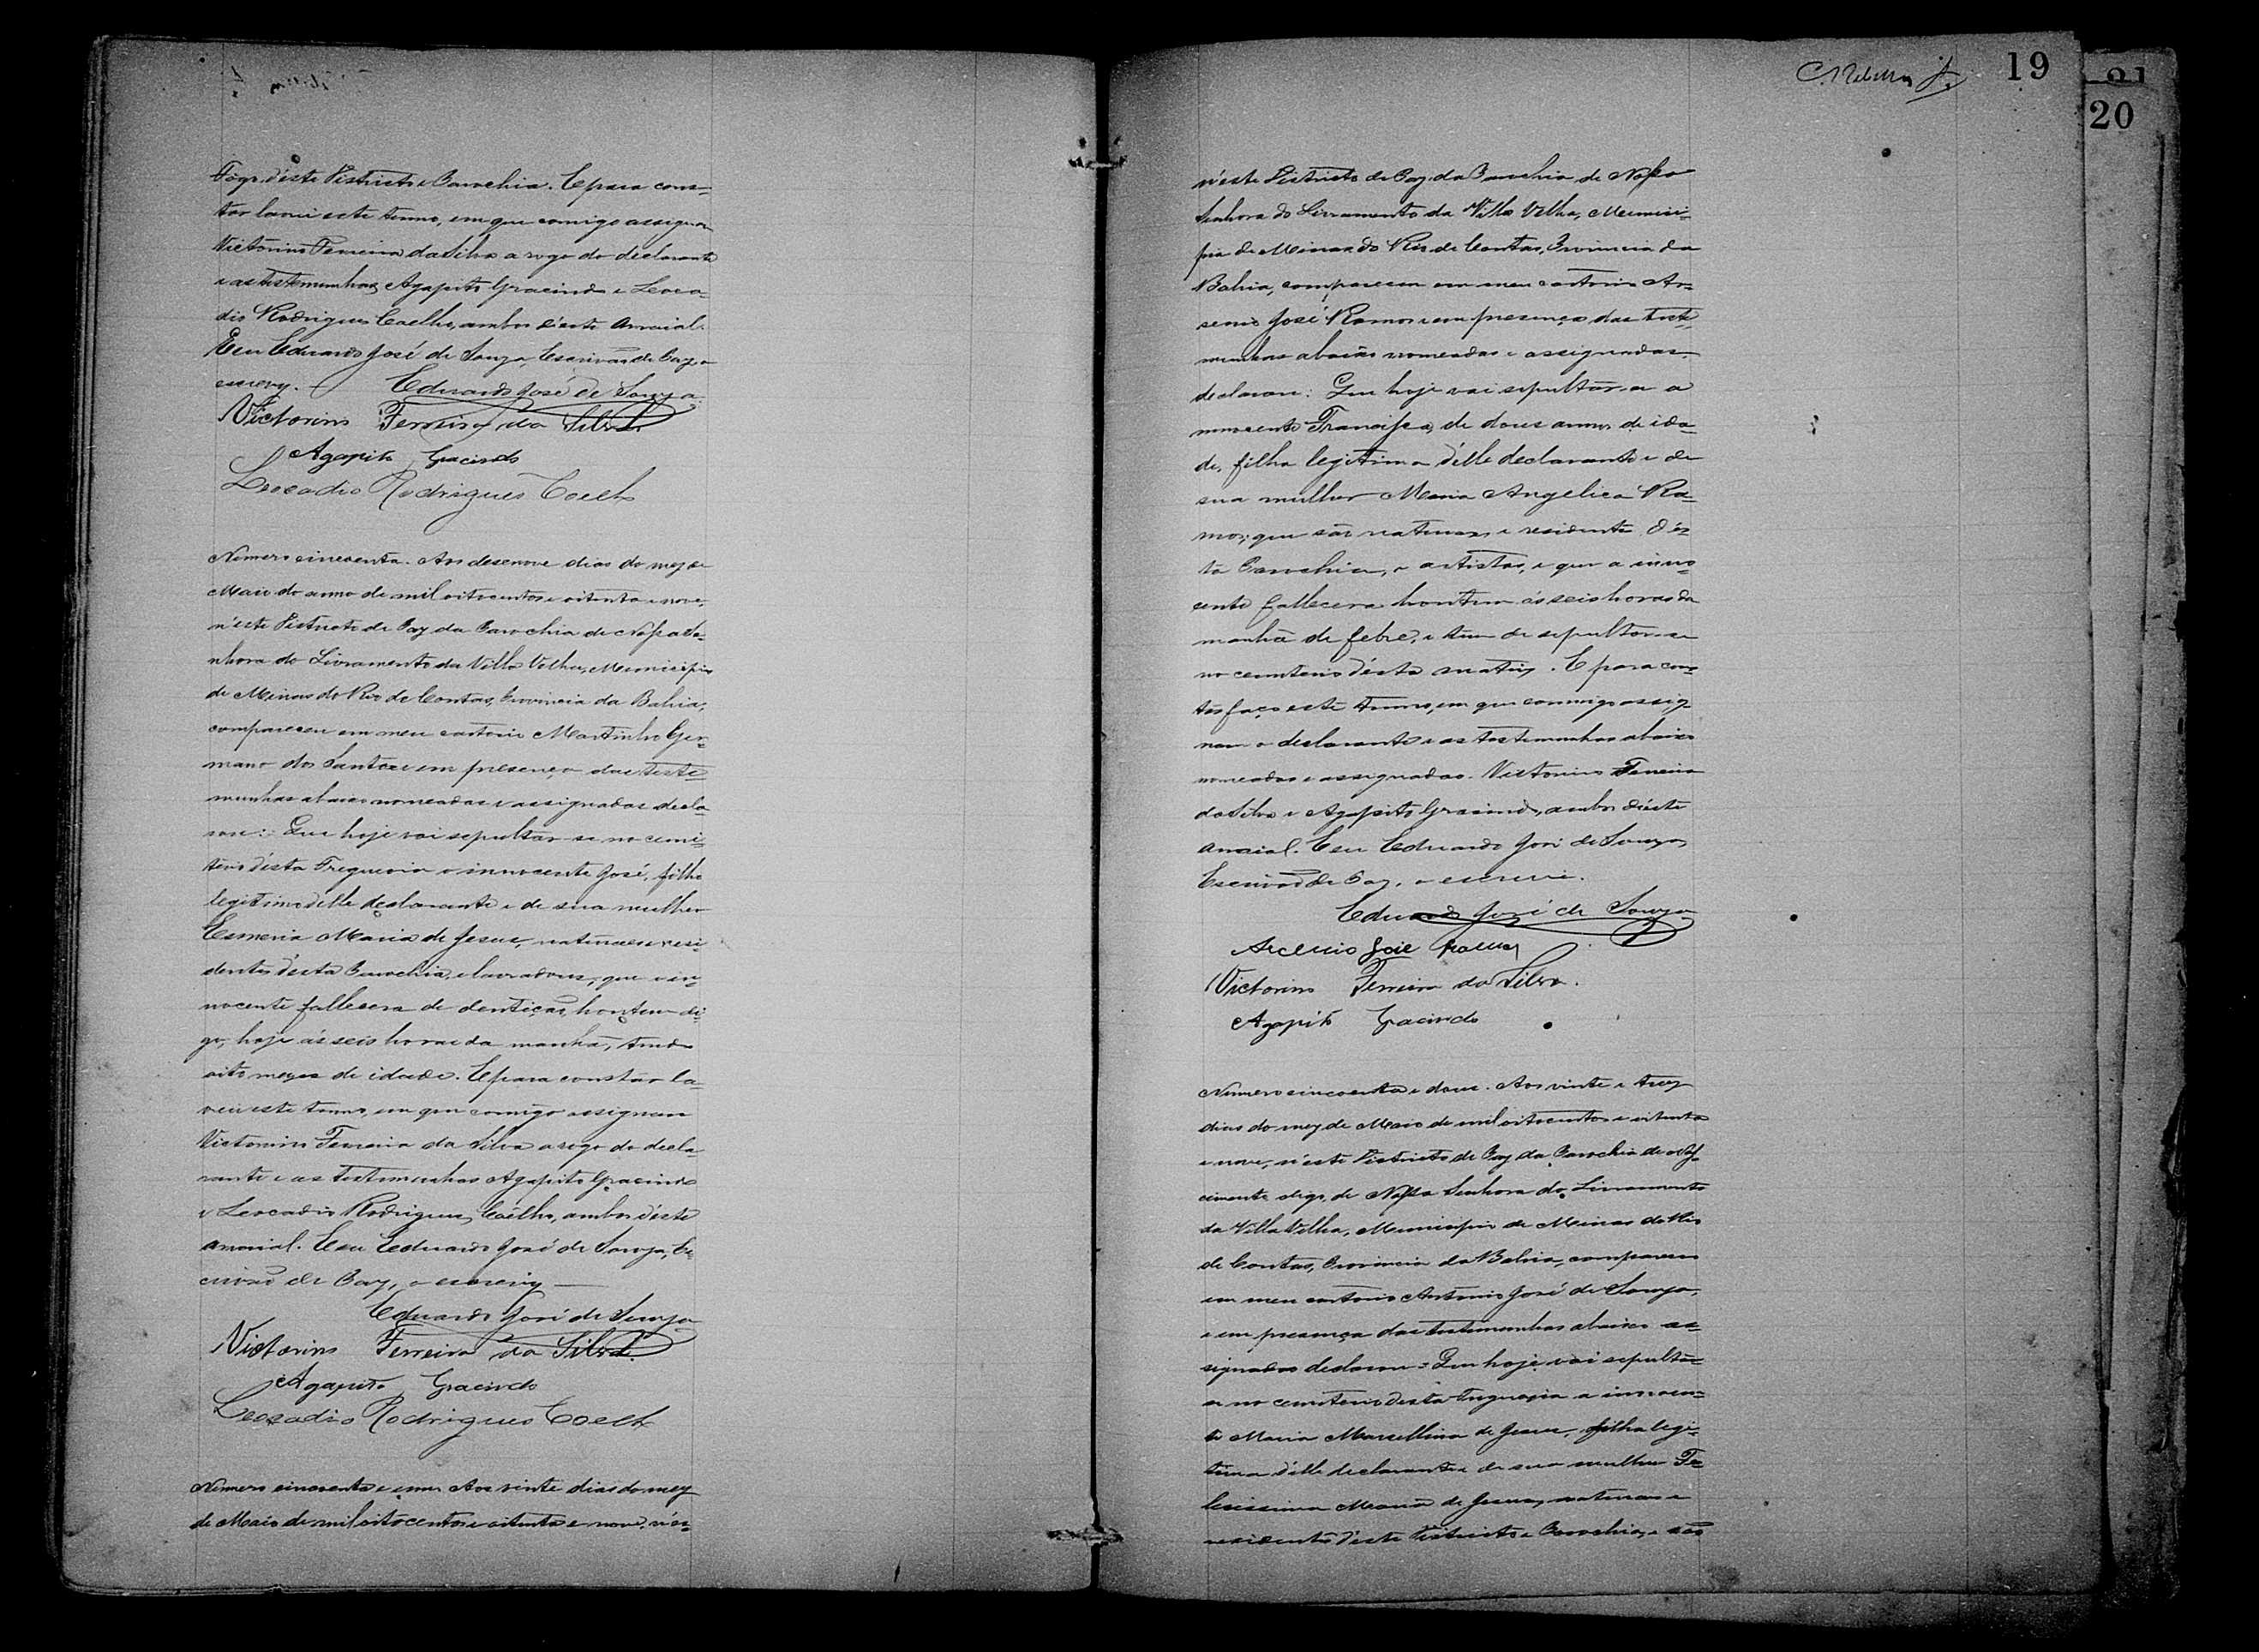 d'éste Districto e Parochia. E para cons-
tar lavrei este termo, em que comigo assignam
Victorino Ferreira da Silva a rogo do declarante
e as testemunhas Agapito Gracindo e Leoca-
dio Rodrigues Coelho, ambos d'éste arraial.
Eu Eduardo José de Souza, Escrivão de Paz o
escrevy. Eduardo José de Souza
Victorino Ferreira da Silva
Agapito Gracindo
Leocadio Rodrigues Coelh
Numero cincoenta. Aos desenove dias do mez de
Maio do anno de mil oitocentos e oitenta e nove,
n'éste Districto de Paz da Parochia de Nossa Se-
nhora do Livramento da Villa Velha, Municipio
de Minas do Rio de Contas, Provincia da Bahia,
compareceu em meu cartorio Martinho Ger-
mano dos Santos e em presença das teste-
munhas abaixo nomeadas e assignadas decla-
rou: Que hoje vai sepultar-se no cemi-
terio désta Freguezia o innocente José, filho
legitimo delle declarante e de sua mulher
Esmeria Maria de Jesus, naturaes e resi-
dentes désta Parochia, e lavradores, que o in-
nocente fallecera de dentição, hontem di-
go, hoje ás seis horas da manhã, tendo
oito mezes de idade. E para constar la-
vrei este termo, em que comigo assignam
Victorino Ferreira da Silva a rogo do decla-
rante e as testimunhas Agapito Gracindo
e Leocadio Rodrigues Coêlho, ambos d'éste
arraial. Eu Eduardo José de Souza, Es-
crivão de Paz, o escrevy
Eduardo José de Souza
Victorino Ferreira da Silva
Agapito Gracindo
Leocadio Rodrigues Coelh
Numero cincoenta e um. Aos vinte dias do mez
de Maio de mil oitocentos e oitenta e nove, n'és-
19
20
n'éste Districto de Paz da Parochia de Nossa
Senhora do Livramento da Villa Velha, Munici-
pio de Minas do Rio de Contas, Provincia da
Bahia, compareceu em meu cartorio Ar-
senio José Ramos e em presença das teste-
munhas abaixo nomeadas e assignadas
declarou: Que hoje vai sepultar-se a
innocente Francisca, de dous annos de ida-
de, filha legitima d'élle declarante e de
sua mulher Maria Angelica Ra-
mos, que são naturaes e residentes d'és-
ta Parochia, e artistas, e que a inno-
cente fallecera hontem ás seis horas da
manhã de febre, e tem de sepultar-se
no cemiterio désta matriz. E para cons-
tar faço este termo, em que commigo assig-
nam o declarante e as testemunhas abaixo
nomeadas e assignadas. Victorino Ferreira
da Silva e Agapito Gracindo, ambos d'éste
arraial. Eu Eduardo José de Souza,
Escrivão de Paz, o escrevi.
Eduardo José de Souza
Arcenio José Ramos
Victorino Ferreira da Silva.
Agapito Gracindo
Numero cincoenta e dous. Aos vinte e trez
dias do mez de Maio de mil oitocentos e oitenta
e nove, n'éste Districto de Paz da Parochia de
digo, de Nossa Senhora do Livramento
da Villa Velha, Municipio de Minas do Rio
de Contas, Provincia da Bahia, compareceu
em meu cartorio Antonio José de Souza,
e em presença das testemunhas abaixo as-
signadas declarou: Que hoje vai sepultar-
se no cemiterio desta freguezia a innocen-
te Maria Marcellina de Jesus, filha legi-
tima d'élle declarante e de sua mulher Fe-
licissima Maria de Jesus, naturaes e
residentes d'éste Districto e Parochia, e são